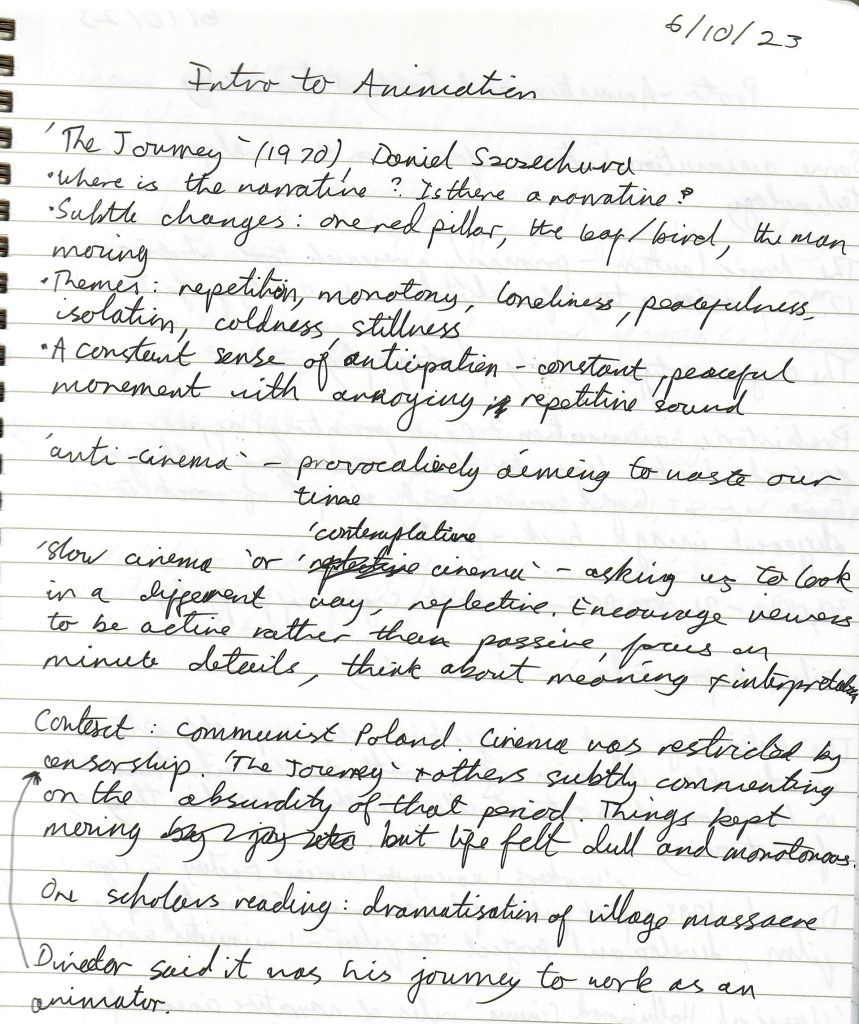 6/10/23
Intro to Animation
'The Journey' (1970), Daniel Szczechura
• Where is the narrative? Is there a narrative?
• Subtle changes: one red pillar, the leaf/bird, the man
moving
• Themes: repetition, monotony, loneliness, peacefulness,
isolation, coldness, stillness
• A constant sense of anticipation - constant, peaceful
movement with annoying, repetitive sound
'anti-cinema' - provocatively aiming to waste our
time
'contemplative
'slow cinema' or 'reflective cinema' - asking us to look
in a different way, reflective. Encourage viewers
to be active rather than passive, focus on
minute details, think about meaning + interpretation
Context: communist Poland. Cinema was restricted by
censorship. 'The Journey' + others subtly commenting
on the absurdity of that period. Things kept
moving but life felt dull and monotonous.
One scholars reading: dramatisation of village massacre
Director said it was his journey to work as an
animator.